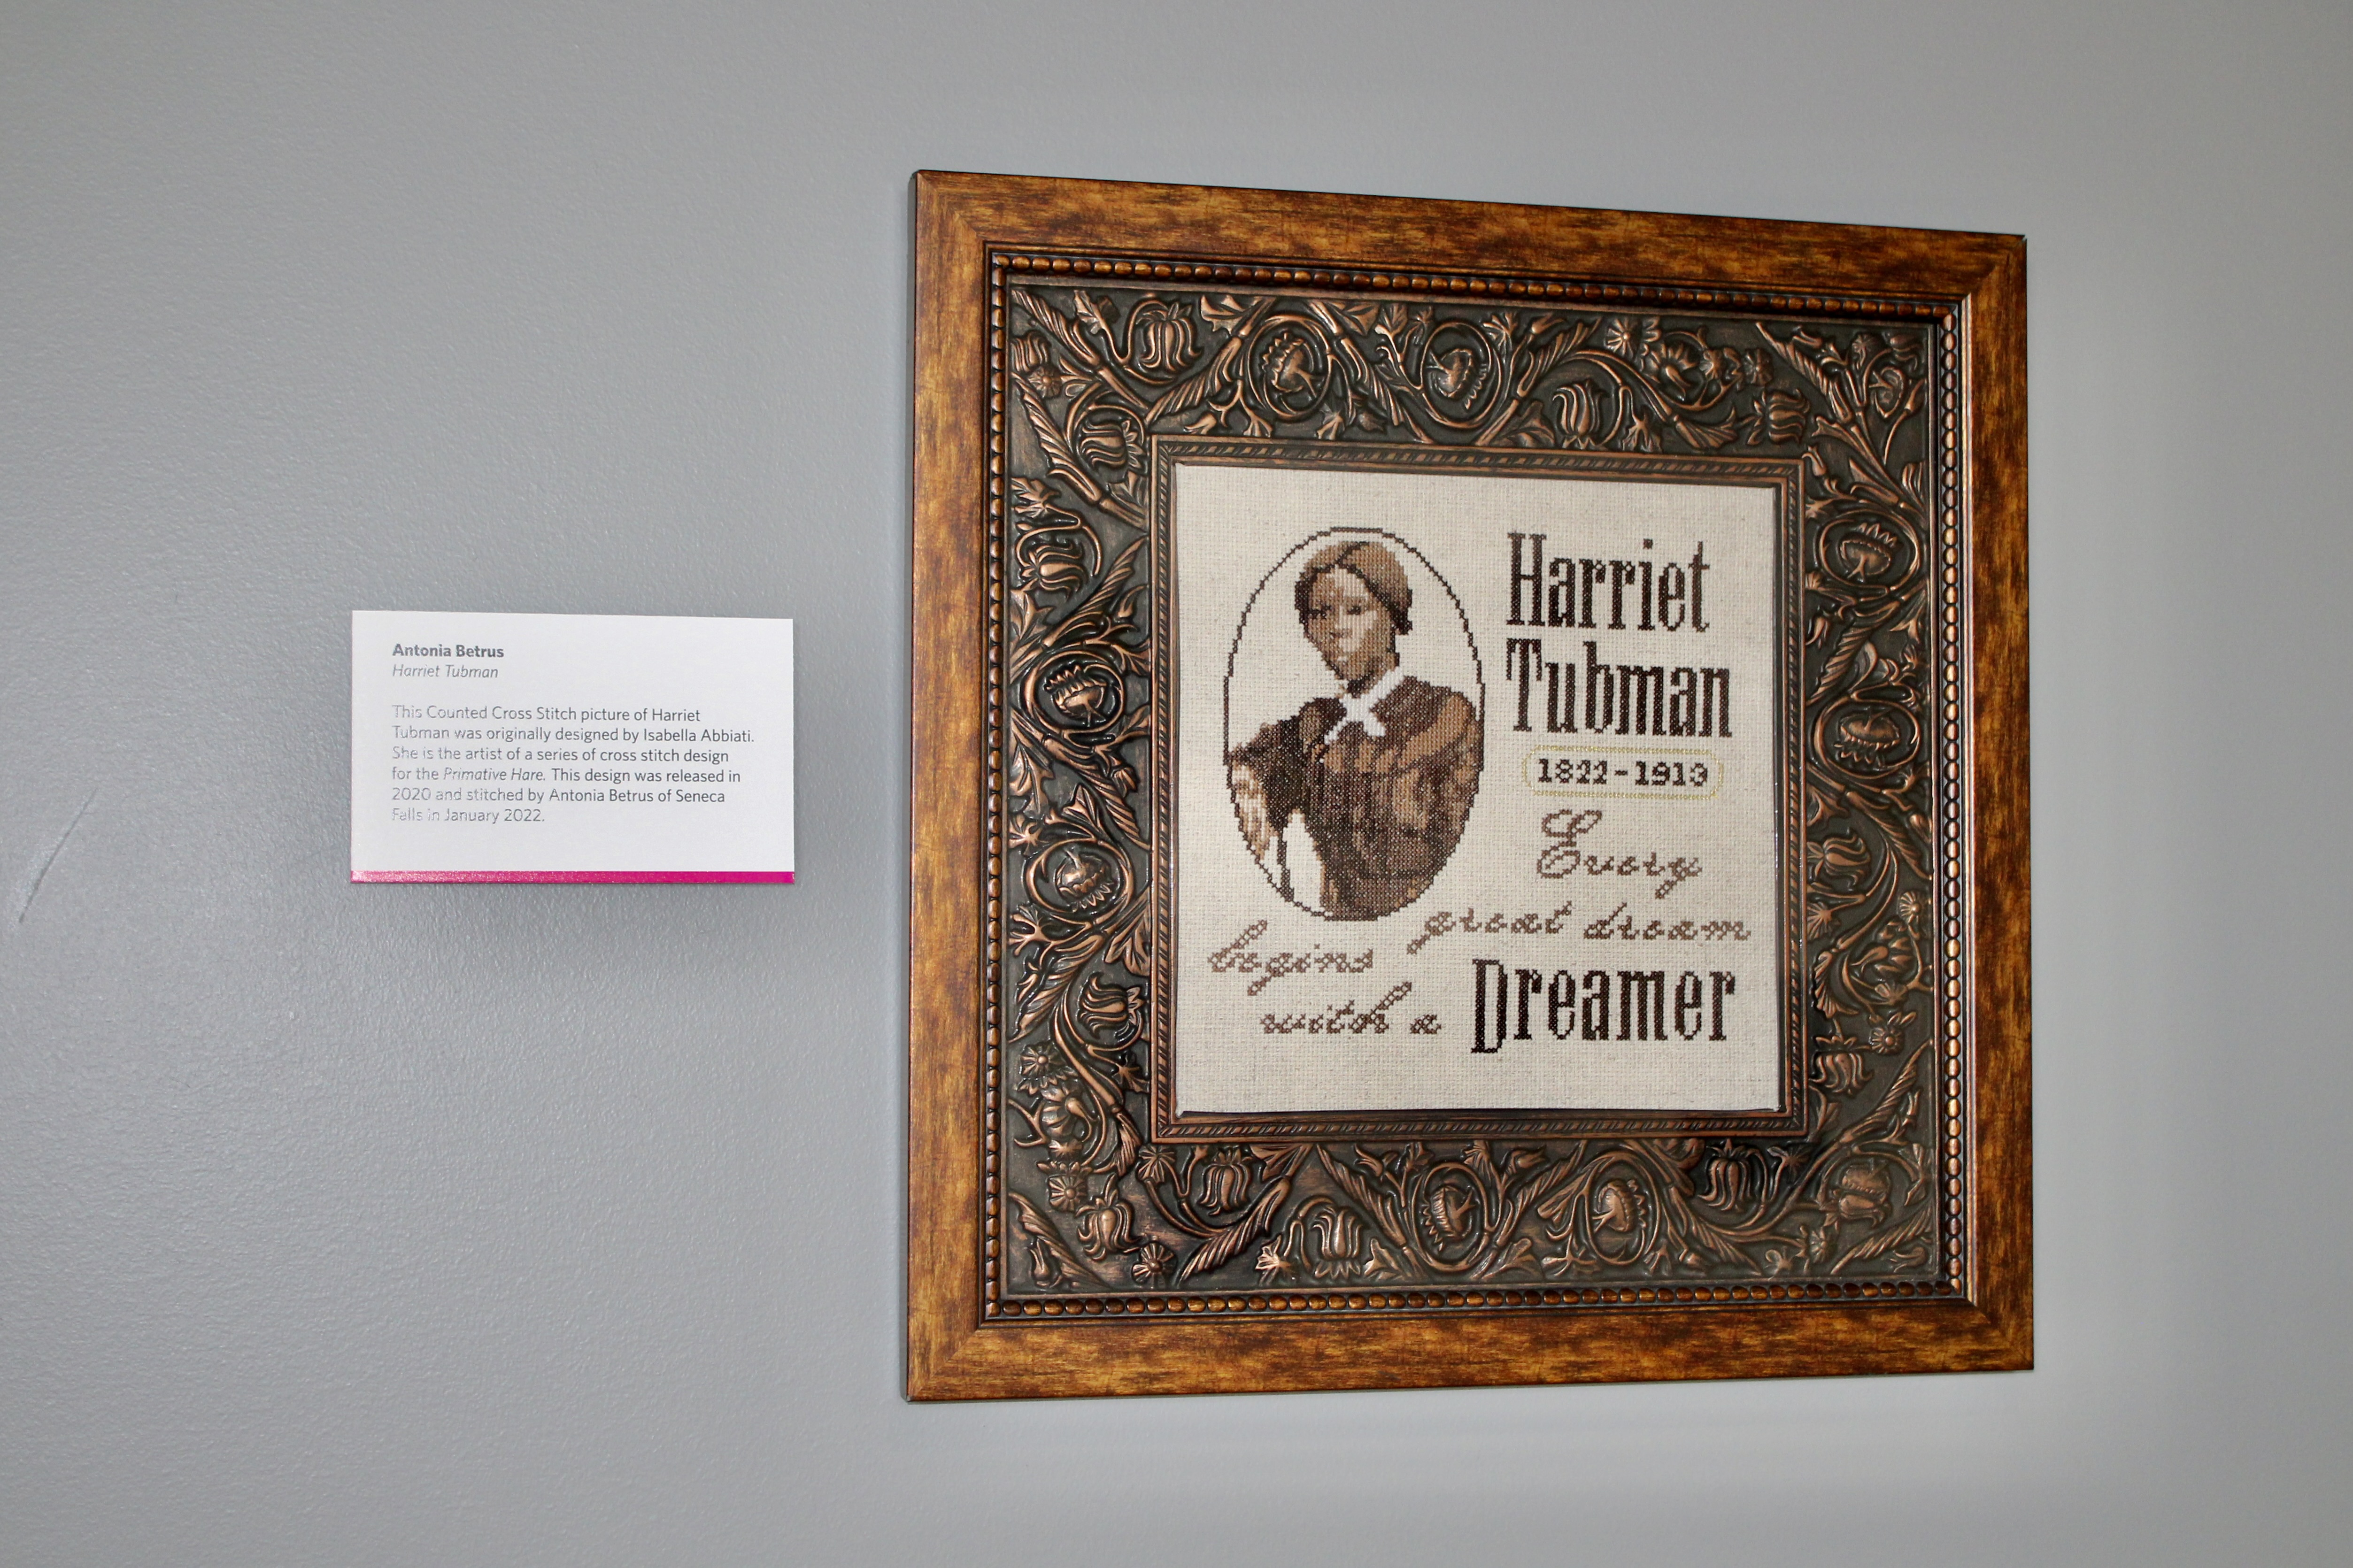 Antonia Betrus
Harriet Tubman
This Counted Cross Stitch picture of Harriet
Tubman was originally designed by Isabella Abbiati.
She is the artist of a series of cross stitch design
for the Primative Hare. This design was released in
2020 and stitched by Antonia Betrus of Seneca
Falls in January 2022.
Harriet
Tubman
1822-1913
Every
great dream
begins
with a Dreamer